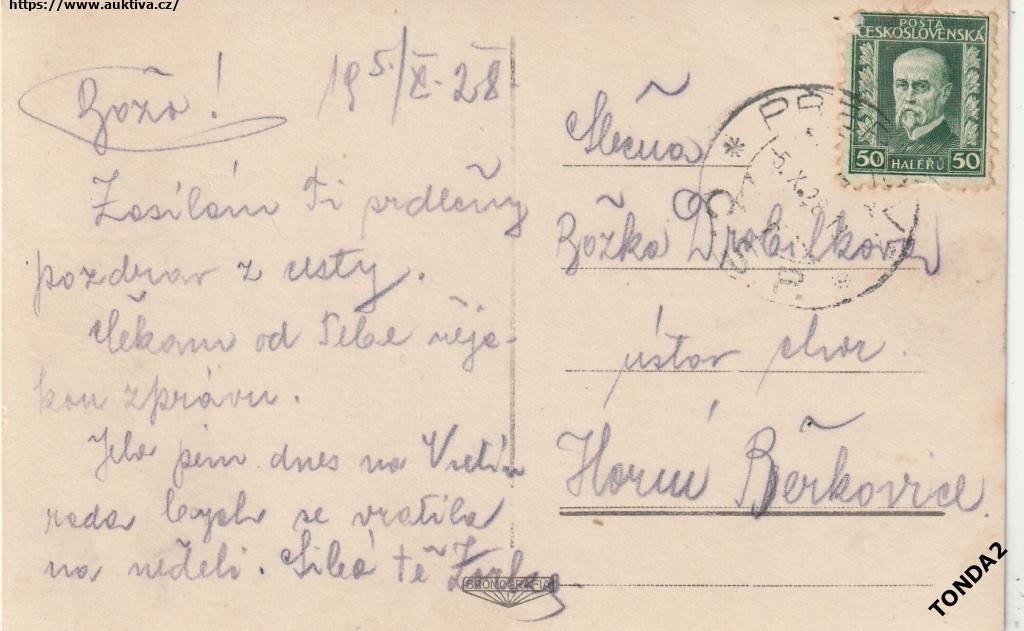 https://www.auktiva.cz/
Božo!
19 5./X. 28.
Zasílám Ti srdečný
pozdrav z cesty.
Čekám od Tebe něja-
kou zprávu.
Jela jsem dnes na
ráda bych se vrátila
na neděli. Líbá tě
Slečna
Božka Drobilková
ústav chor.
Horní Beřkovice.
POŠTA
ČESKOSLOVENSKÁ
50 HALÉŘŮ 50
5.X.28
BROMOGRAFIA
TONDA2